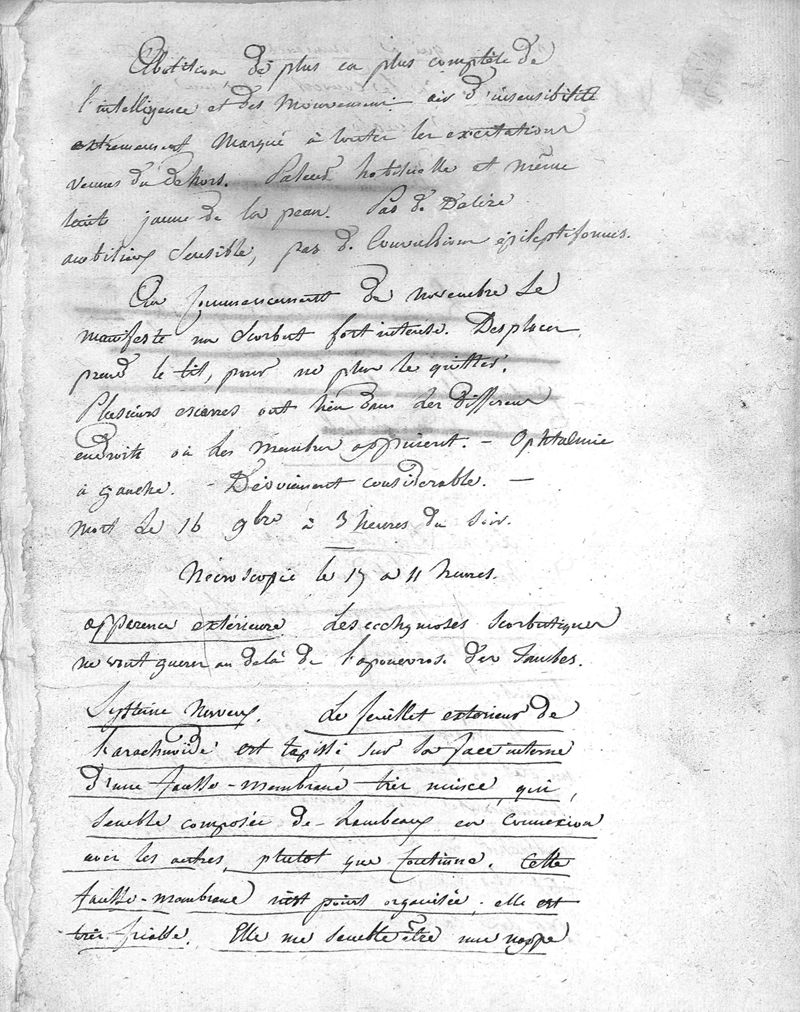 Abolition de plus en plus complète de
l'intelligence et des mouvemens air d'insensibilité
extremement marqué à toutes les excitations
venues du dehors. Paleur habituelle et même
teint jaune de la peau. Pas de Delire
ambitieux sensible, pas de Convulsions épileptiformes.
Au commencement de novembre Se
manifeste un Scorbut fort intense. Desplacer
prend le lit, pour ne plus le quitter.
Plusieurs escarres ont lieu dans les differens
endroits où les membres appuient. - Ophtalmie
à gauche. - Dévoiement considerable. -
mort le 16 9bre à 3 heures du soir.
Nécroscopie le 17 a 11 heures.
apparence extérieure Les ecchymoses Scorbutiques
ne vont guerre au delà de l'aponevrose des Jambes.
Systême Nerveux. Le feuillet exterieur de
l'arachnoïde est tapissé sur sa face interne
d'une fausse-membrane très mince, qui,
semble composée de lambeaux en connexion
avec les autres, plutot que continue. Cette
fausse-membrane n'est point organisée. elle est
très friable. Elle me semble être une nappe